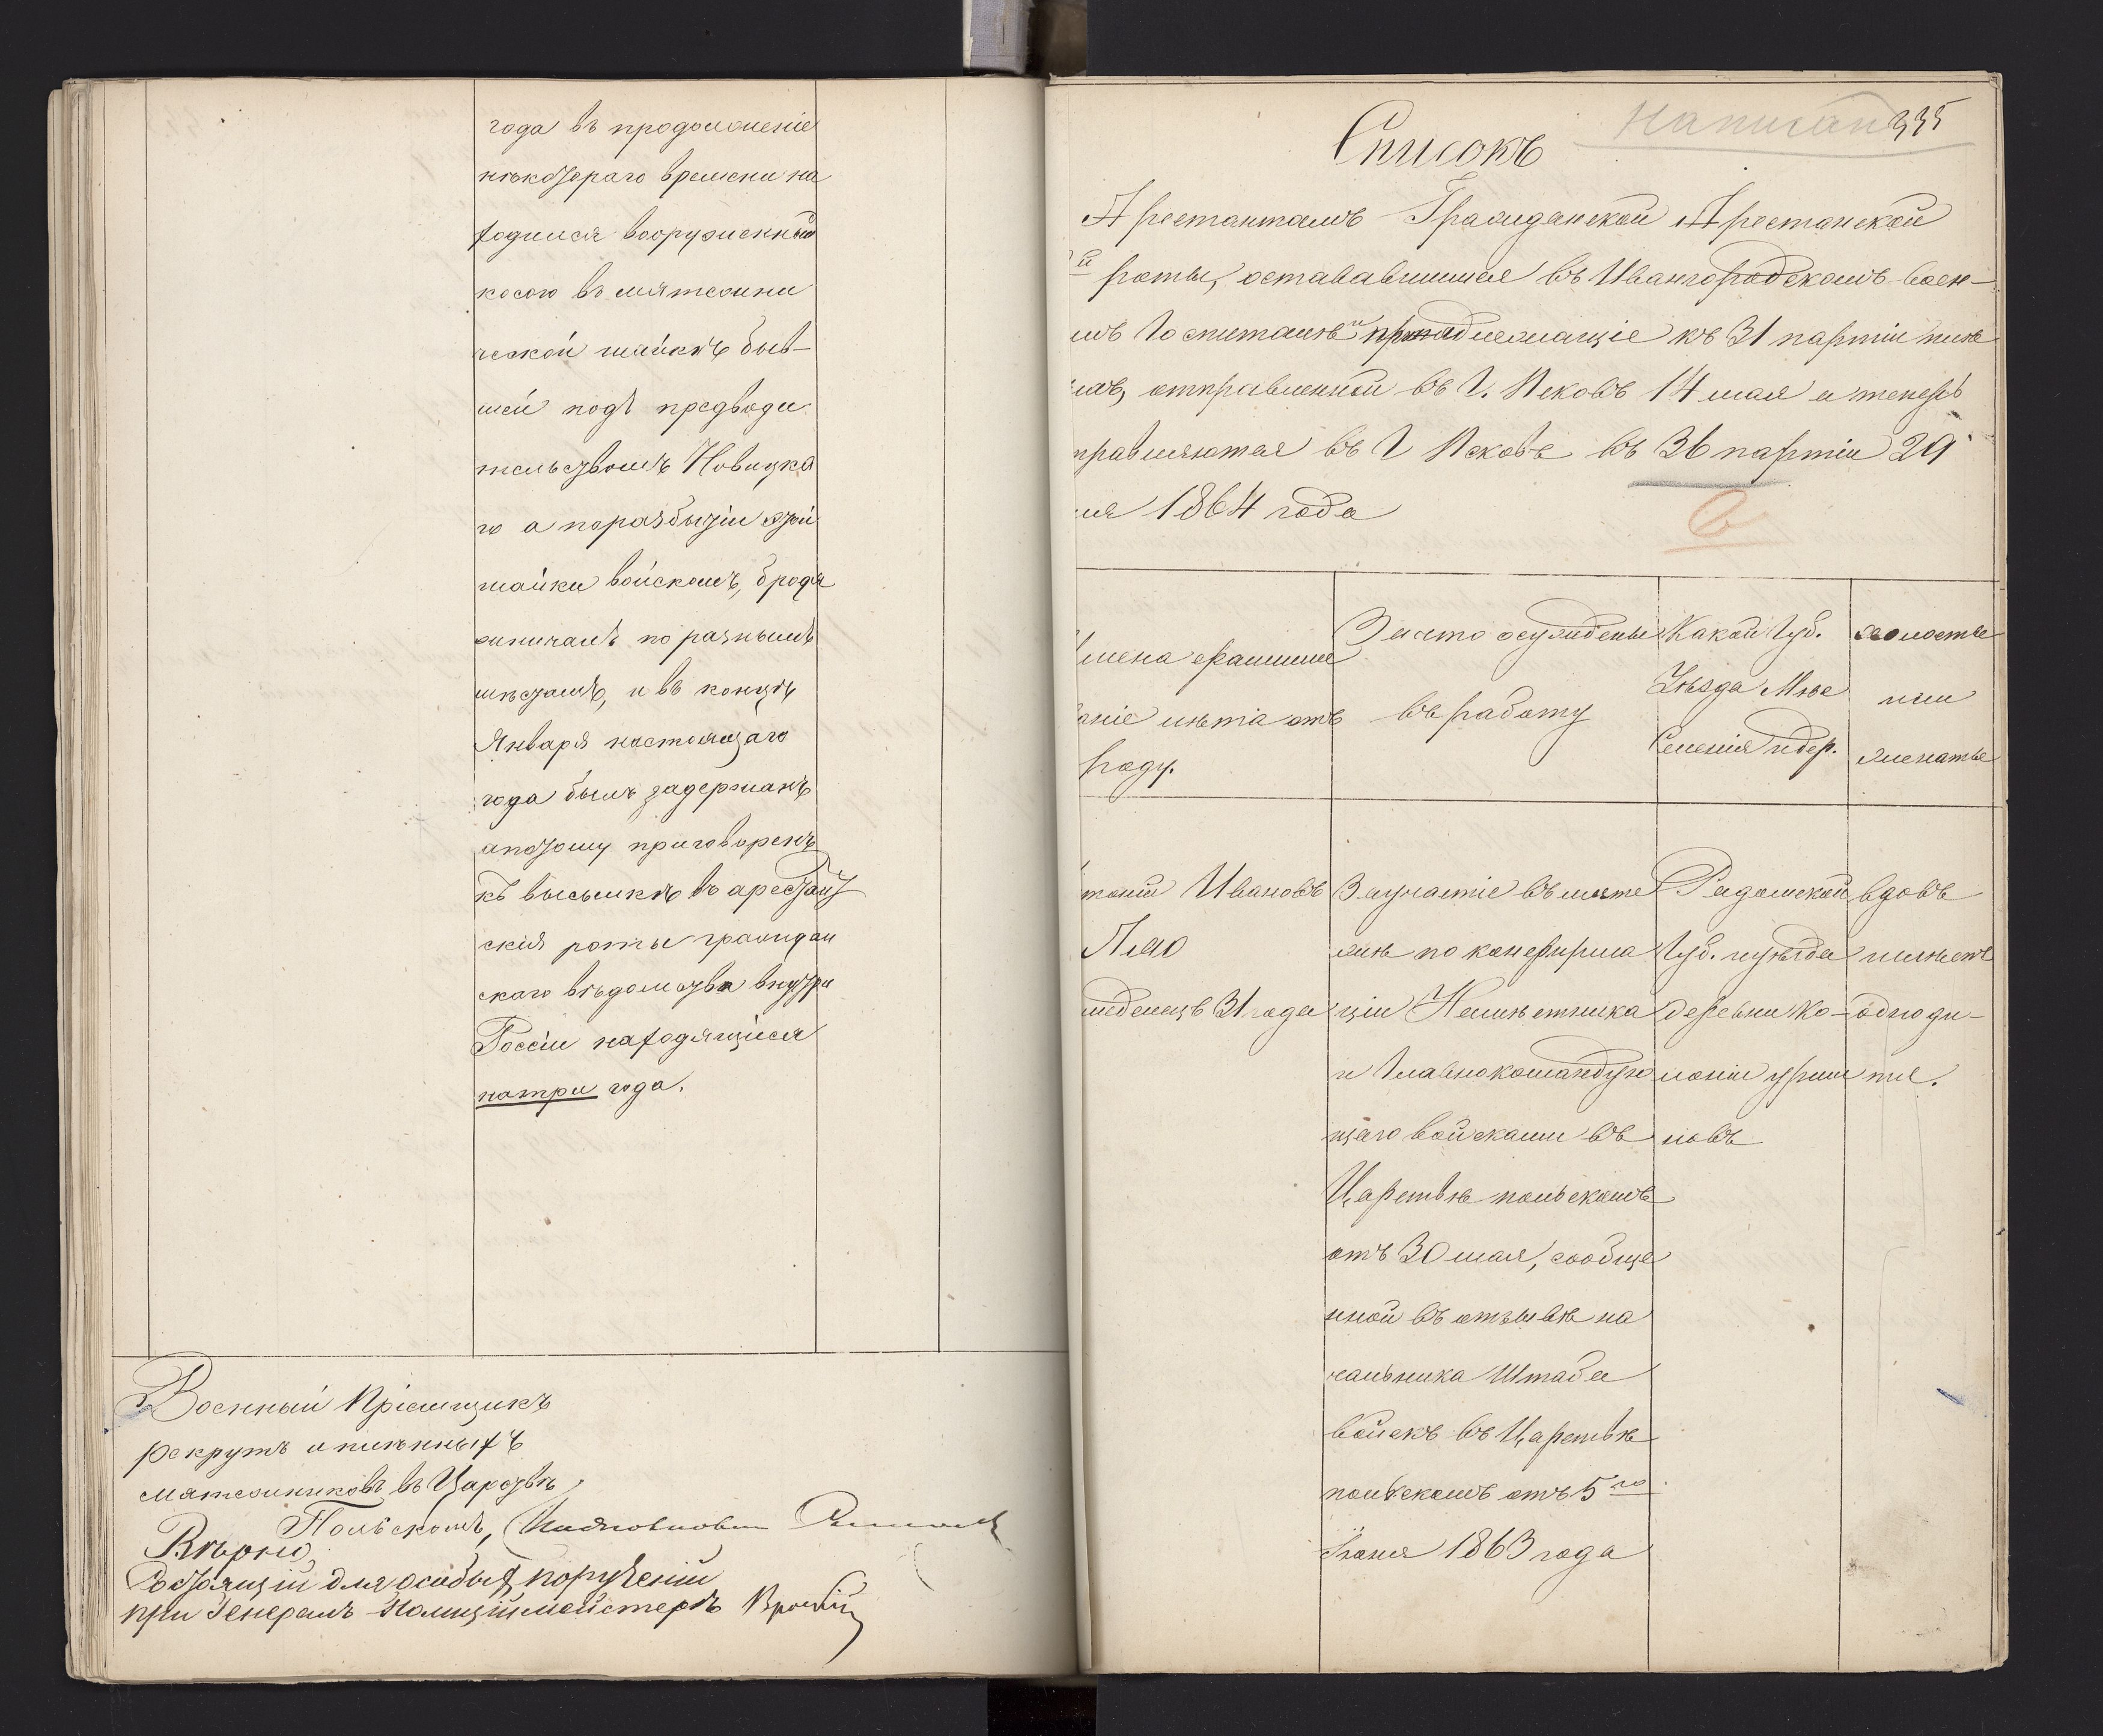 года въ продолженіе
нѣкотораго времени на
ходился вооруженный
косою въ мятежни
ческой шайкѣ быв-
шей подъ предводи
тельствомъ Новицка
го а поразбитіи этой
шайки войскомъ, бродя
жничалъ по разнымъ
мѣстамъ, и въ концѣ
Января настоящаго
года былъ задержанъ
апотому приговоренъ
къ высылкѣ въ арестант
скія роты граждан
скаго вѣдомства внутри
Россіи находящіися
натри года.
Военный Пріемщикъ
рекрутъ и плѣнныхъ
мятежниковъ въ Царствѣ
Польскомъ,
Вѣрно
Состоящій для особыхъ порученій
при Генералъ-Полиціймейстерѣ
Написан 335
Списокъ
Арестантамъ Гражданской Арестанской
й роты, остававшимся въ Ивангородскомъ воен-
мъ Госпиталѣ и принадлежащіе къ 31 партіи плѣ
ыхъ, отправленной въ Г. Псковъ 14 мая и теперь
правляются въ Г Псковъ въ 36 партіи 29
ля 1864 года
6
Имена фамиліе
аніе илѣтіа отъ
роду.
Зачто осуждены
въ работу
Какой Губ.
Уѣзда Мѣс
Селенія идер.
холостые
или
женатые
тоній Ивановъ
Младенецъ 31 года
Заучастіе въ мяте
жѣ по конфирма
ціи Намѣстника
и Главнокомандую
щаго войсками въ
Царствѣ польскомъ
отъ 30 мая, сообще
нной въ отзывѣ на
чальника Штаба
войскъ въ Царствѣ
польскомъ отъ 5го
Іюня 1863 года
Радомской
Губ. иуѣзда
деревни Ко-
лоніи
новъ
вдовъ
имѣетъ
одноди-
тя.